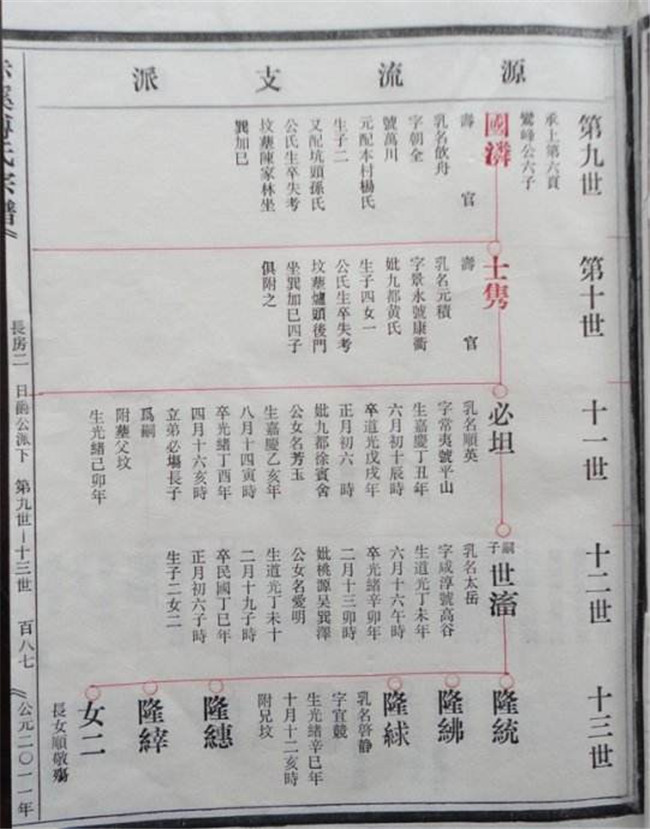 源流支派
第九世
承上第六頁
鶯峰公六子
國潾
壽官
乳名飲舟
字朝全
號萬川
元配本村楊氏
生子二
又配坑頭孫氏
公氏生卒失考
坟塟陳家林坐
巽加巳
第十世
士雋
壽官
乳名元積
字景永號康衢
妣九都黃氏
生子四女一
公氏生卒失考
坟塟爐頭後門
坐巽加巳四子
俱附之
十一世
必坦
乳名順英
字常夷號平山
生嘉慶丁丑年
六月初十辰時
卒道光戊戌年
正月初六 時
妣九都徐賓舍
公女名芳玉
生嘉慶乙亥年
八月十四寅時
卒光緒丁酉年
四月十六亥時
立弟必塲長子
爲嗣
附塟父坟
生光緒己卯年
十二世
嗣子
世濇
乳名太岳
字咸淳號高谷
生道光丁未年
六月十六午時
卒光緒辛卯年
二月十三卯時
妣桃源吴巽澤
公女名愛明
生道光丁未十
二月十九子時
卒民國丁巳年
正月初六子時
生子二女二
十三世
隆統
隆紼
隆絿
乳名啓静
字宜競
生光緒辛巳年
十月十二亥時
附兄坟
隆繐
隆綷
女二
長女順敬殤
氏宗譜》
長房二 日 公派下 第九世—十三世 百八七 《公元二〇一一年